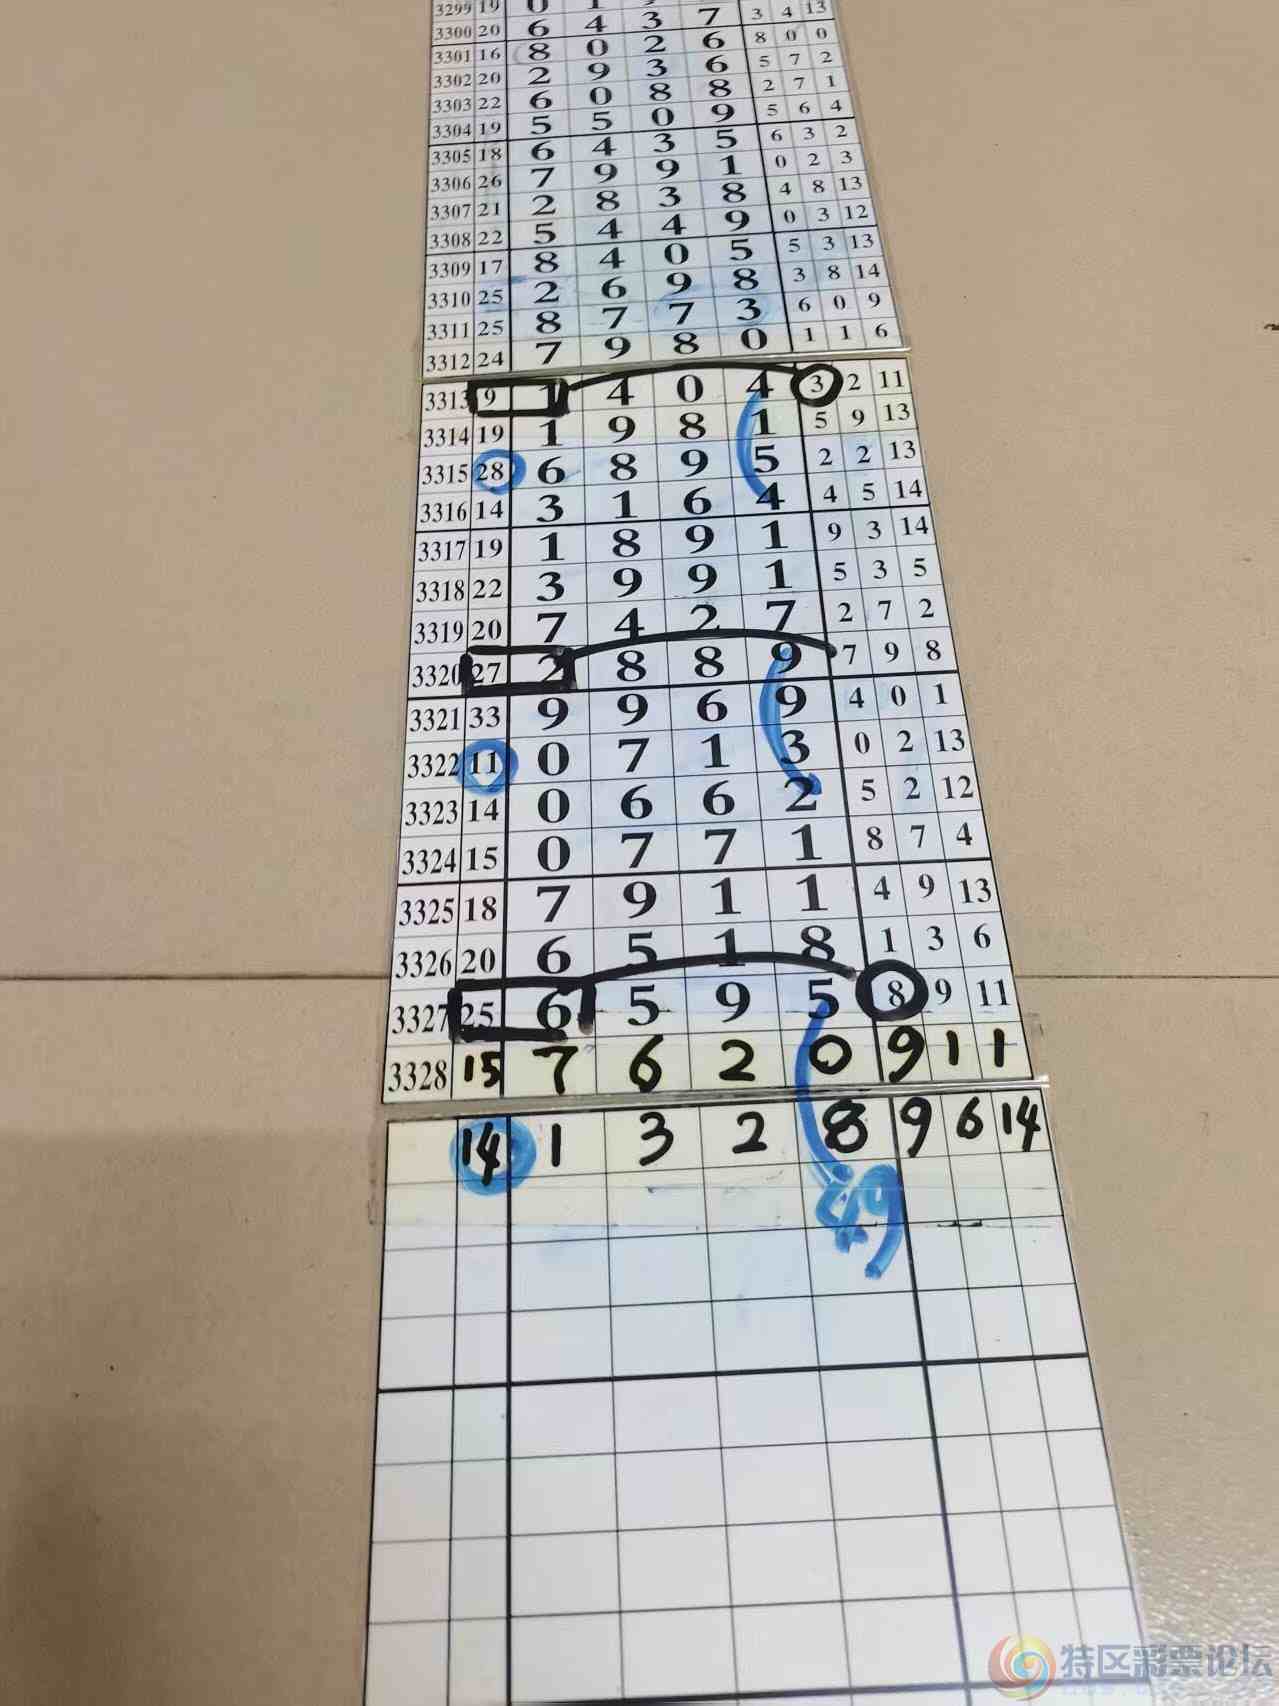 3299 19 0 1
3300 20 6 4 3 7 3 4 13
3301 16 8 0 2 6 8 0 0
3302 20 2 9 3 6 5 7 2
3303 22 6 0 8 8 2 7 1
3304 19 5 5 0 9 5 6 4
3305 18 6 4 3 5 6 3 2
3306 26 7 9 9 1 0 2 3
3307 21 2 8 3 8 4 8 13
3308 22 5 4 4 9 0 3 12
3309 17 8 4 0 5 5 3 13
3310 25 2 6 9 8 3 8 14
3311 25 8 7 7 3 6 0 9
3312 24 7 9 8 0 1 1 6
3313 9 1 4 0 4 3 2 11
3314 19 1 9 8 1 5 9 13
3315 28 6 8 9 5 2 2 13
3316 14 3 1 6 4 4 5 14
3317 19 1 8 9 1 9 3 14
3318 22 3 9 9 1 5 3 5
3319 20 7 4 2 7 2 7 2
3320 27 2 8 8 9 7 9 8
3321 33 9 9 6 9 4 0 1
3322 11 0 7 1 3 0 2 13
3323 14 0 6 6 2 5 2 12
3324 15 0 7 7 1 8 7 4
3325 18 7 9 1 1 4 9 13
3326 20 6 5 1 8 1 3 6
3327 25 6 5 9 5 8 9 11
3328 15 7 6 2 0 9 1 1
14 1 3 2 8 9 6 14
特区彩票论坛